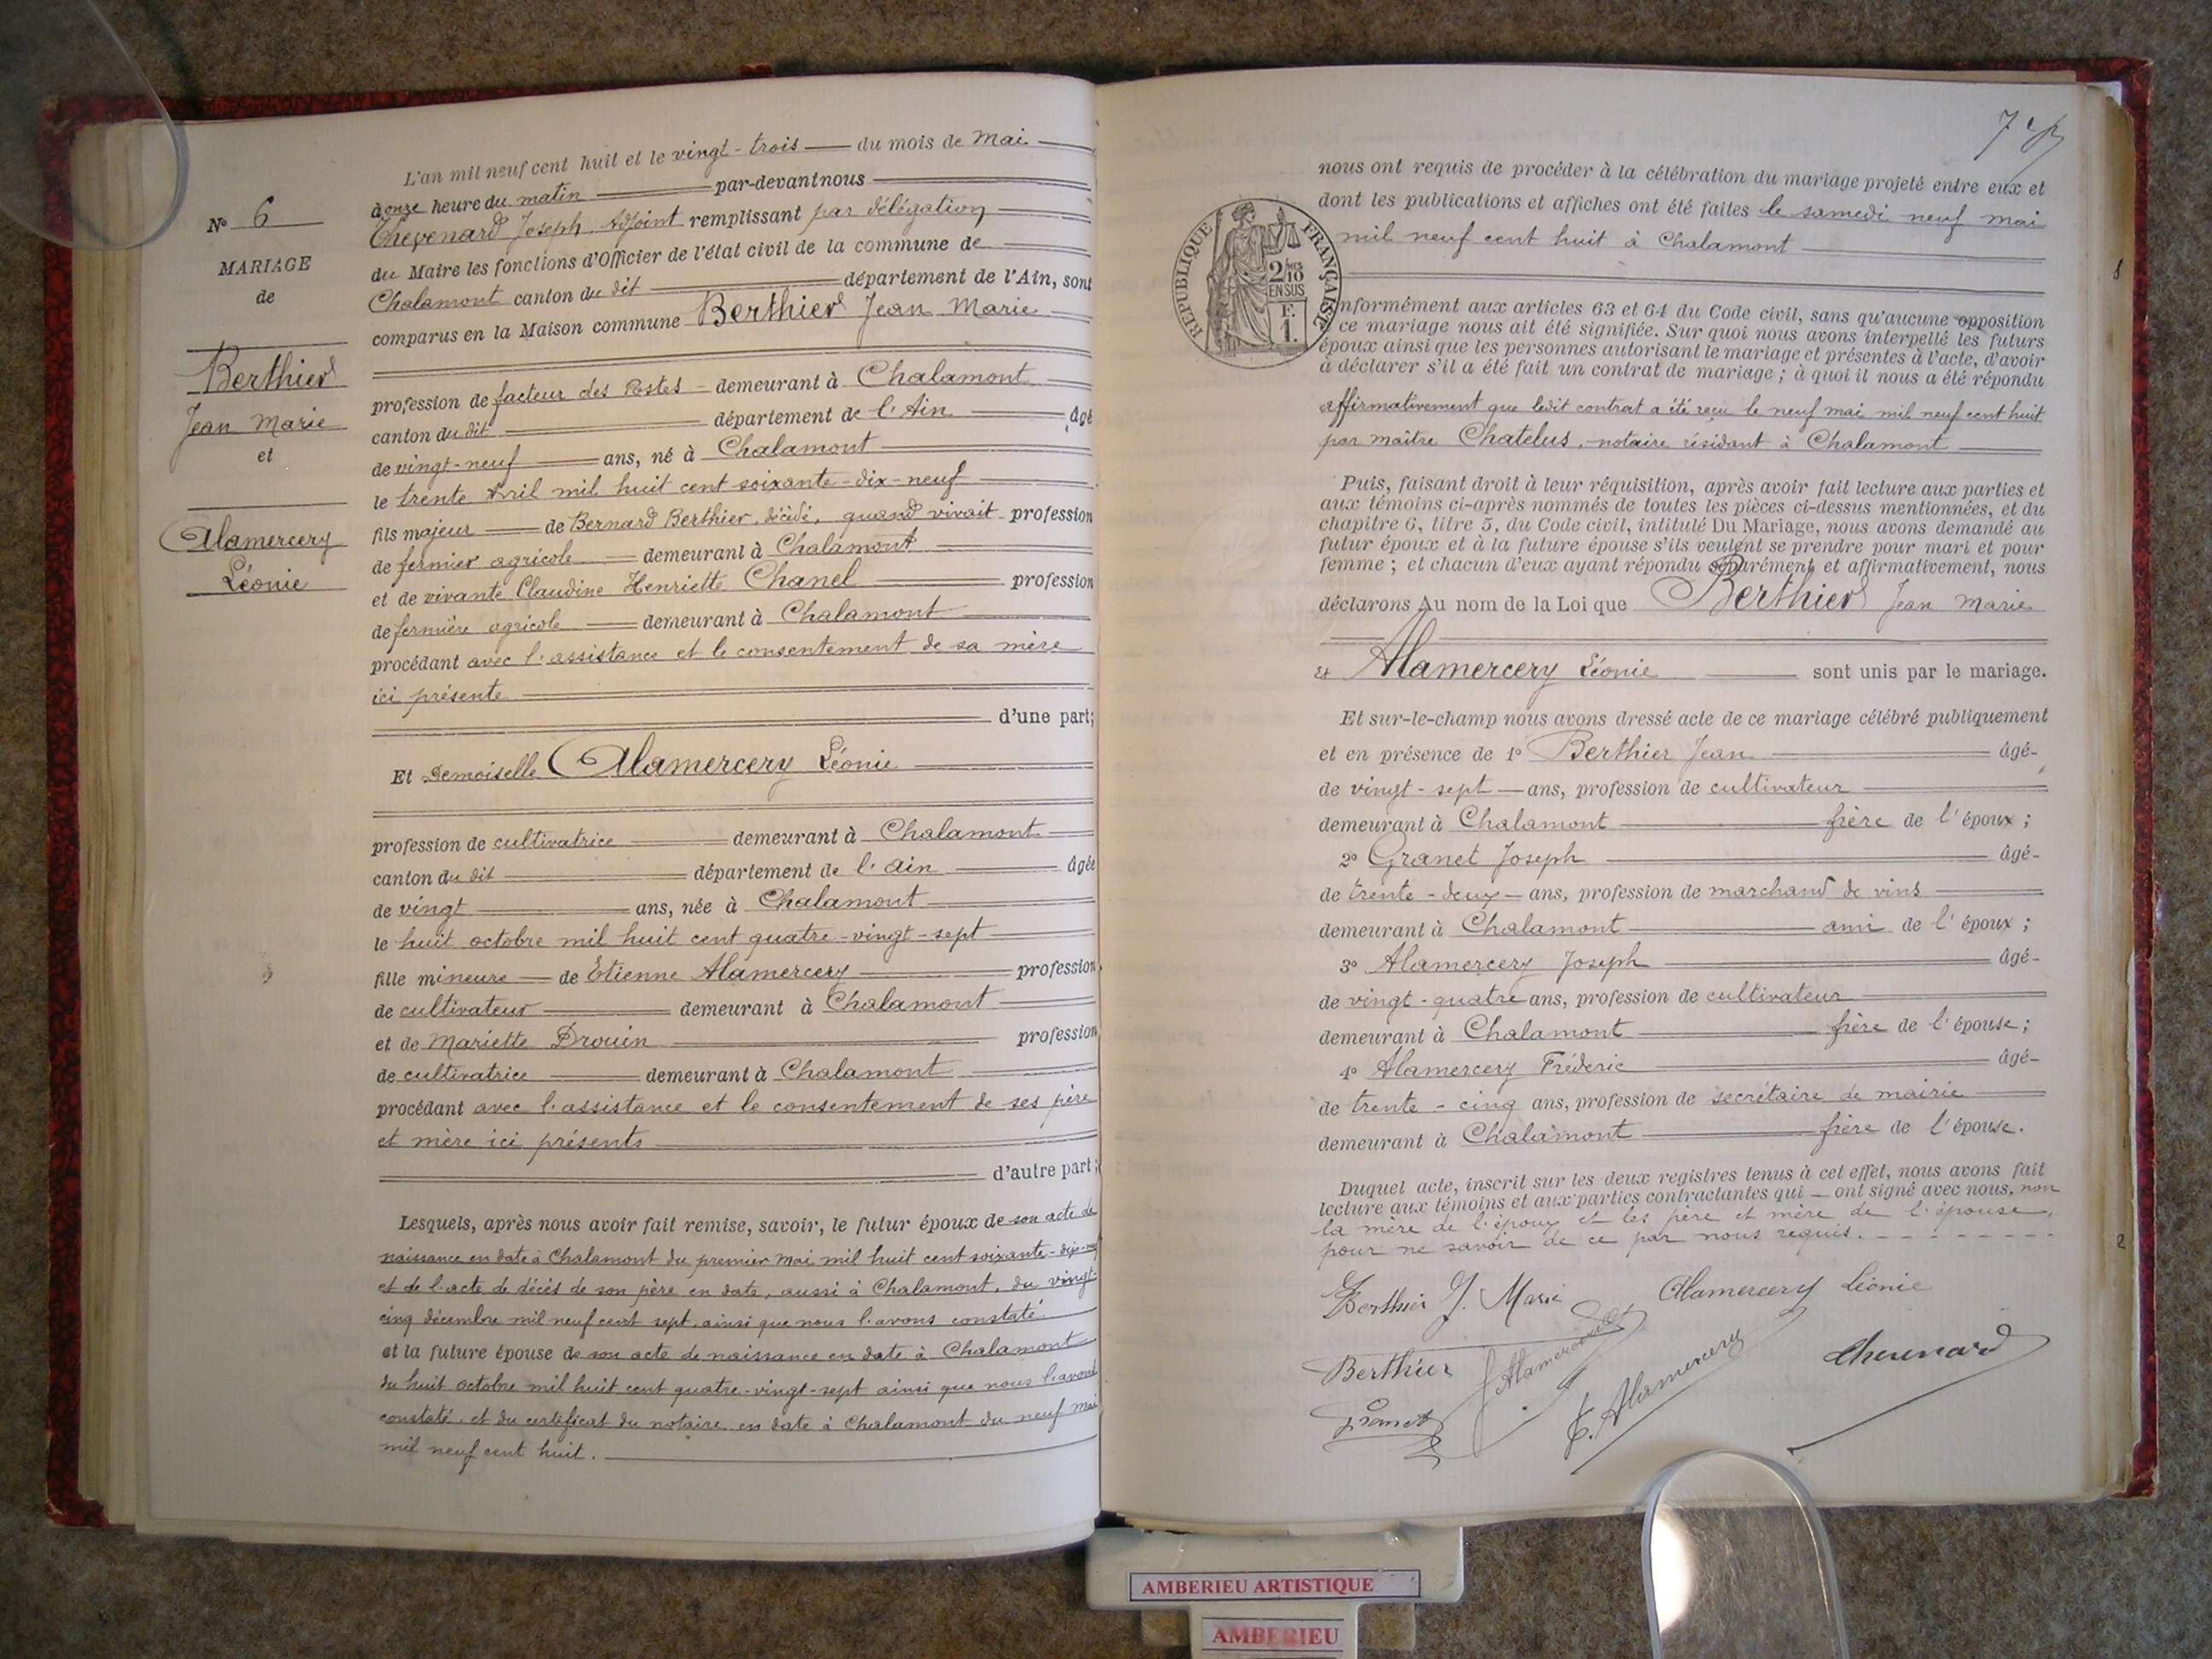 L'an mil neuf cent huit et le vingt-trois du mois de Mai
à onze heure du matin par-devant nous
Chevenard Joseph, Adjoint remplissant par délégation
du Maire les fonctions d'Officier de l'état civil de la commune de
Chalamont canton du dit département de l'Ain, sont
comparus en la Maison commune Berthier Jean Marie
profession de facteur des Postes demeurant à Chalamont
canton du dit département de l'Ain âgé
de vingt-neuf ans, né à Chalamont
le trente Avril mil huit cent soixante-dix-neuf
fils majeur de Bernard Berthier, décédé, quand vivait profession
de fermier agricole demeurant à Chalamont
et de vivante Claudine Henriette Chanel profession
de fermière agricole demeurant à Chalamont
procédant avec l'assistance et le consentement de sa mère
ici présente
d'une part;
Et Demoiselle Alamercery Léonie
profession de cultivatrice demeurant à Chalamont
canton du dit département de l'ain âgée
de vingt ans, née à Chalamont
le huit octobre mil huit cent quatre-vingt-sept
fille mineure de Etienne Alamercery profession
de cultivateur demeurant à Chalamont
et de Mariette Drouin profession
de cultivatrice demeurant à Chalamont
procédant avec l'assistance et le consentement de ses père
et mère ici présents
d'autre part;
Lesquels, après nous avoir fait remise, savoir, le futur époux de son acte de
naissance en date à Chalamont du premier Mai mil huit cent soixante-dix-neuf
et de l'acte de décès de son père en date, aussi à Chalamont, du vingt-
cinq décembre mil neuf cent sept, ainsi que nous l'avons constaté
et la future épouse de son acte de naissance en date à Chalamont
du huit octobre mil huit cent quatre-vingt-sept ainsi que nous l'avons
constaté, et du certificat du notaire en date à Chalamont du neuf mai
mil neuf cent huit.
N° 6
MARIAGE
de
Berthier
Jean Marie
et
Alamercery
Léonie
nous ont requis de procéder à la célébration du mariage projeté entre eux et
dont les publications et affiches ont été faites le samedi neuf mai
mil neuf cent huit à Chalamont
RÉPUBLIQUE FRANÇAISE
2/10
EN SUS
F.
1.
nformément aux articles 63 et 64 du Code civil, sans qu'aucune opposition
ce mariage nous ait été signifiée. Sur quoi nous avons interpellé les futurs
époux ainsi que les personnes autorisant le mariage et présentes à l'acte, d'avoir
à déclarer s'il a été fait un contrat de mariage; à quoi il nous a été répondu
affirmativement que ledit contrat a été reçu le neuf mai mil neuf cent huit
par maître Chatelus, notaire résidant à Chalamont
Puis, faisant droit à leur réquisition, après avoir fait lecture aux parties et
aux témoins ci-après nommés de toutes les pièces ci-dessus mentionnées, et du
chapitre 6, titre 5, du Code civil, intitulé Du Mariage, nous avons demandé au
futur époux et à la future épouse s'ils veulent se prendre pour mari et pour
femme; et chacun d'eux ayant répondu séparément et affirmativement, nous
déclarons Au nom de la Loi que Berthier Jean Marie
Et Alamercery Léonie sont unis par le mariage.
Et sur-le-champ nous avons dressé acte de ce mariage célébré publiquement
et en présence de 1° Berthier Jean âgé-
de vingt-sept ans, profession de cultivateur
demeurant à Chalamont frère de l'époux;
2° Granet Joseph âgé-
de trente-deux ans, profession de marchand de vins
demeurant à Chalamont ami de l'époux;
3° Alamercery Joseph âgé-
de vingt-quatre ans, profession de cultivateur
demeurant à Chalamont frère de l'épouse;
4° Alamercery Fréderic âgé-
de trente-cinq ans, profession de secrétaire de mairie
demeurant à Chalamont frère de l'épouse.
Duquel acte, inscrit sur les deux registres tenus à cet effet, nous avons fait
lecture aux témoins et aux parties contractantes qui ont signé avec nous, non
la mère de l'époux et les père et mère de l'épouse,
pour ne savoir de ce par nous requis.
Berthier J. Marie Alamercery Léonie
Berthier J Alamercery F. Alamercery Chevenard
Granet
AMBERIEU ARTISTIQUE
AMBERIEU